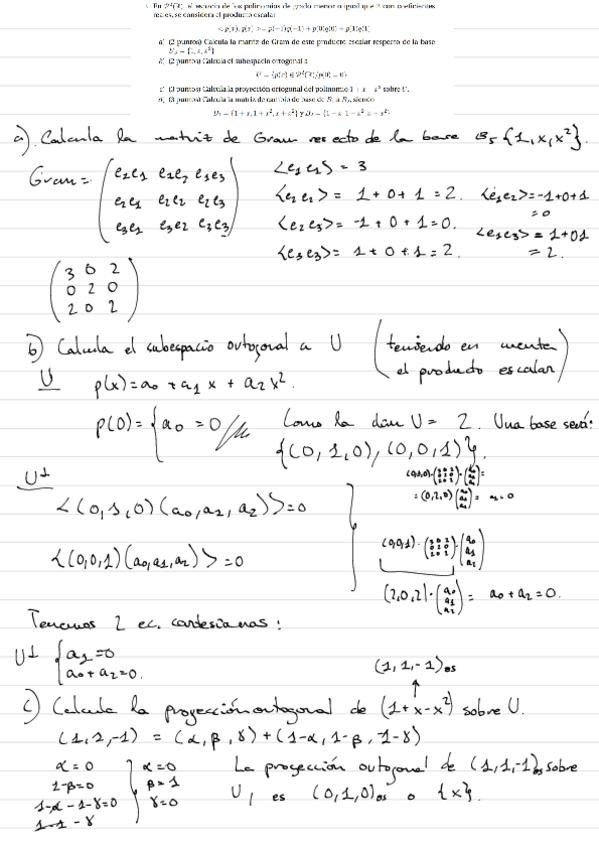 En P²(R), el espacio de los polinomios de grado menor o igual que 2 con coeficientes
reales, se considera el producto escalar
< p(x), q(x) >= p(-1)q(-1) + p(0)q(0) + p(1)q(1)
a) (2 puntos) Calcula la matriz de Gram de este producto escalar respecto de la base
= {1, x, x²}
b) (2 puntos) Calcula el subespacio ortogonal a
U = {p(x) ∈ P²(R)/p(0) = 0}
c) (3 puntos) Calcula la proyección ortogonal del polinomio 1 + x - x² sobre U.
d) (3 puntos) Calcula la matriz de cambio de base de B₁ a B₂, siendo
a). Calcula la matriz de Gram respecto de la base B₅ {1, x, x²}.
Gram = (e₁e₁ e₁e₂ e₁e₃
e₂e₁ e₂e₂ e₂e₃
e₃e₁ e₃e₂ e₃e₃)
<e₁e₁> = 3
<e₂e₂> = 1+0+1 = 2. <e₁e₂> = -1+0+1 = 0
<e₂e₃> = -1+0+1 = 0. <e₁e₃> = 1+01 = 2.
<e₃e₃> = 1+0+1 = 2.
(3 0 2
0 2 0
2 0 2)
b) Calcula el subespacio ortogonal a U (teniendo en cuenta
el producto escalar)
U p(x) = a₀ + a₁x + a₂x².
p(0) = {a₀ = 0 Como la dim U = 2. Una base será:
{(0,1,0), (0,0,1)}.
U⊥
<(0,1,0)(a₀,a₁,a₂)> = 0
(0,1,0)·(3 0 2 0 2 0 2 0 2)·(a₀ a₁ a₂) =
= (0,2,0)(a₀ a₁ a₂) = a₁ = 0
<(0,0,1)(a₀,a₁,a₂)> = 0
(0,0,1)·(3 0 2 0 2 0 2 0 2)·(a₀ a₁ a₂)
(2,0,2)·(a₀ a₁ a₂) = a₀ + a₂ = 0.
Tenemos 2 ec. cartesianas:
U⊥ {a₁ = 0
a₀ + a₂ = 0.
(1, 1, -1)
c) Calcula la proyección ortogonal de (1+x-x²) sobre U.
(1,1,-1) = (α, β, γ) + (1-α, 1-β, -1-γ)
α = 0 } α = 0 La proyección ortogonal de (1,1,-1) sobre
1-β = 0 β = 1 U, es (0,1,0) o {x}.
1-α-1-γ = 0 γ = 0
1-1-γ